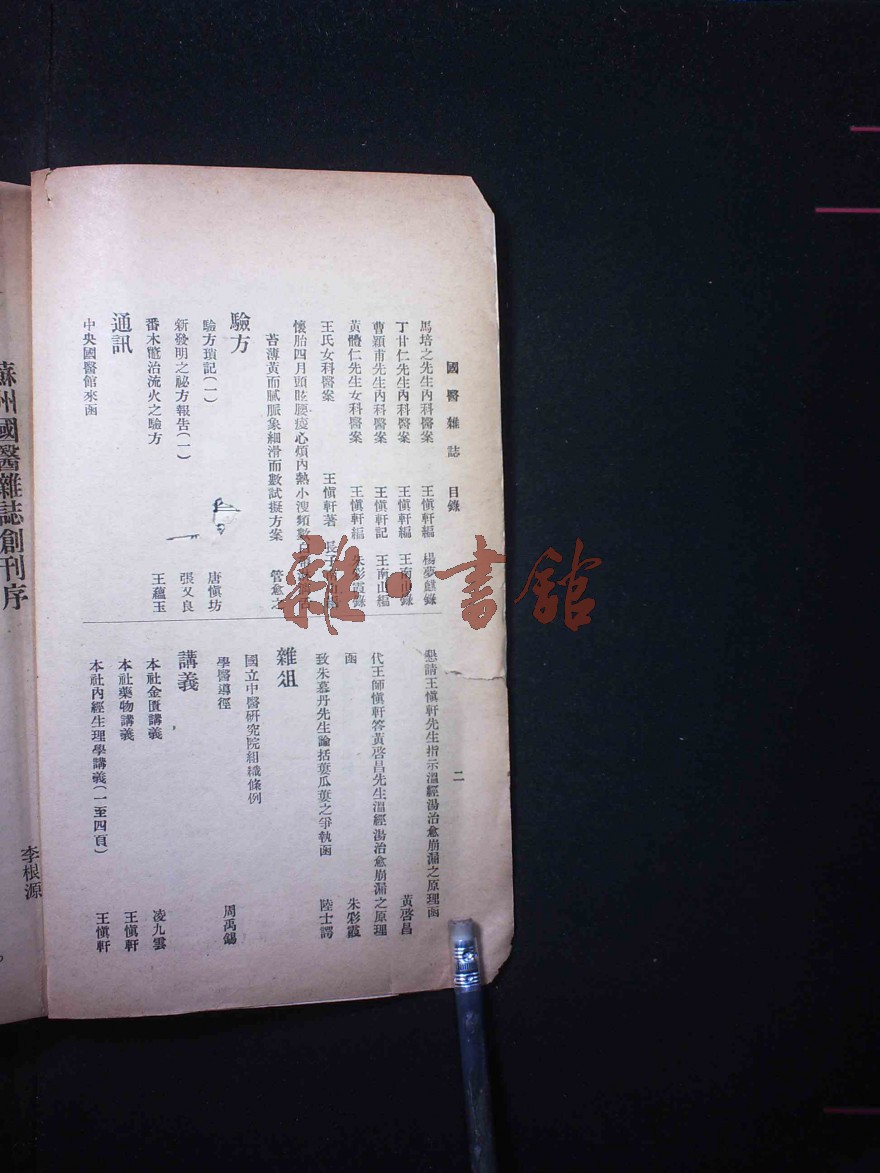 國醫雜誌 目錄
二
馬培之先生內科醫案 王愼軒編 楊夢麒錄
丁甘仁先生內科醫案 王愼軒編 王南山錄
曹穎甫先生內科醫案 王愼軒記 王南山編
黃體仁先生女科醫案 王愼軒編 朱彩霞錄
王氏女科醫案 王愼軒著 長子
懷胎四月頭眩腰痠心煩內熱小溲頻數
苔薄黃而膩脈象細滑而數試擬方案 管愈之
驗方
驗方瑣記(一) 唐愼坊
新發明之祕方報告(一) 張又良
番木鼈治流火之驗方 王蘊玉
通訊
中央國醫館來函
懇請王愼軒先生指示溫經湯治愈崩漏之原理函
黃啓昌
代王師愼軒答黃啓昌先生溫經湯治愈崩漏之原理
函 朱彩霞
致朱慕丹先生論括蔞瓜蔞之爭執函 陸士諤
雜俎
國立中醫硏究院組織條例
學醫導徑 周禹錫
講義
本社金匱講義 凌九雲
本社藥物講義 王愼軒
本社內經生理學講義(一至四頁) 王愼軒
蘇州國醫雜誌創刊序
李根源
雜·書館